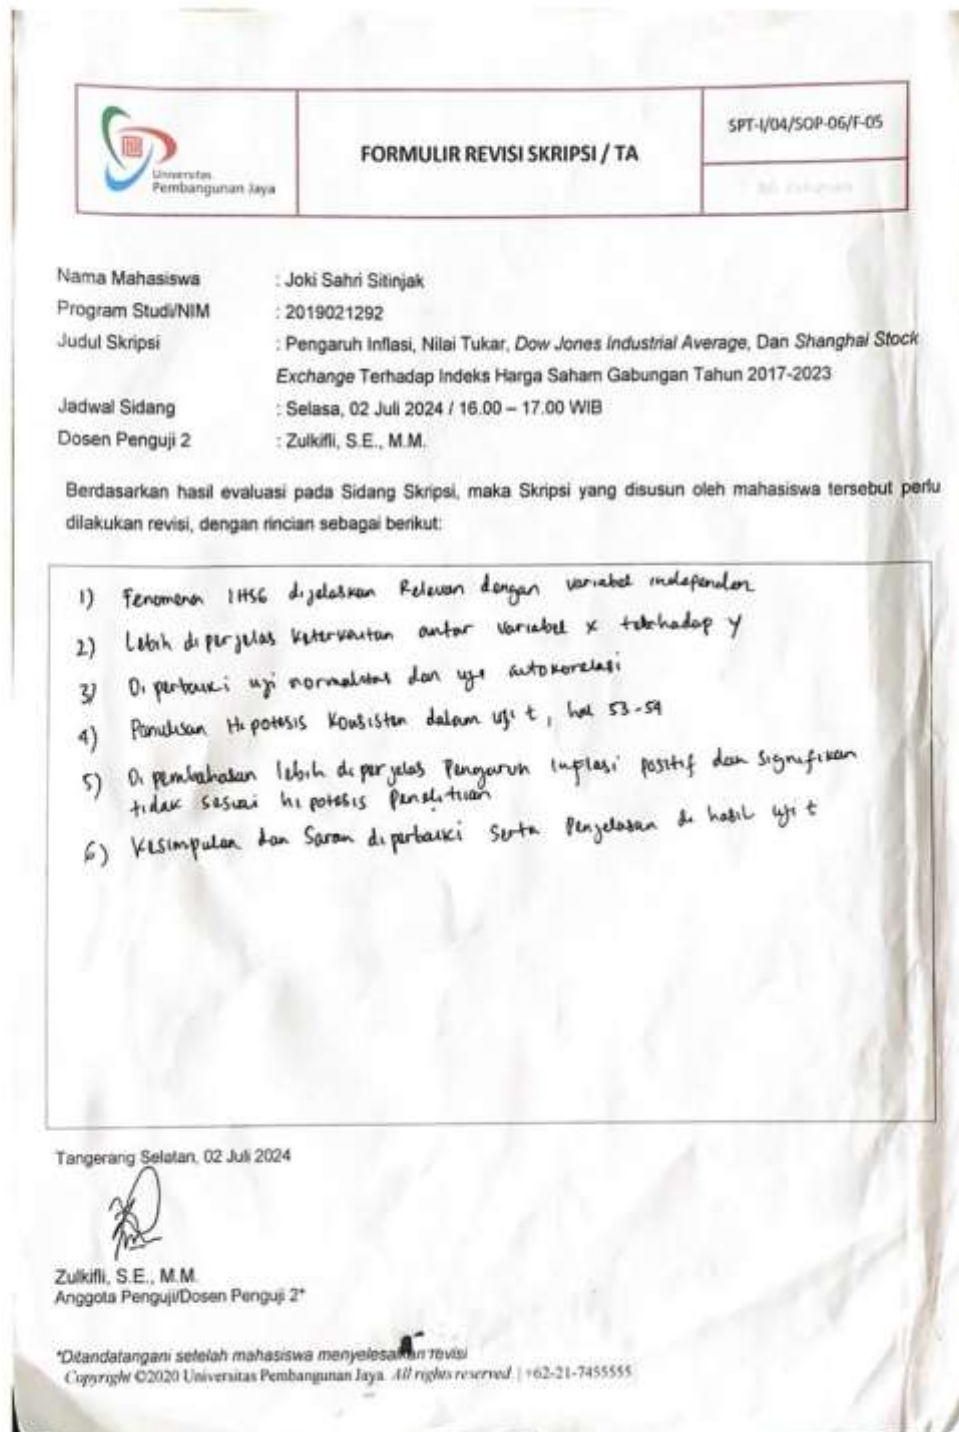 Universitas
Pembangunan Jaya
FORMULIR REVISI SKRIPSI / TA
SPT-I/04/SOP-06/F-05
Nama Mahasiswa : Joki Sahri Sitinjak
Program Studi/NIM : 2019021292
Judul Skripsi : Pengaruh Inflasi, Nilai Tukar, Dow Jones Industrial Average, Dan Shanghai Stock
Exchange Terhadap Indeks Harga Saham Gabungan Tahun 2017-2023
Jadwal Sidang : Selasa, 02 Juli 2024 / 16.00 – 17.00 WIB
Dosen Penguji 2 : Zulkifli, S.E., M.M.
Berdasarkan hasil evaluasi pada Sidang Skripsi, maka Skripsi yang disusun oleh mahasiswa tersebut perlu
dilakukan revisi, dengan rincian sebagai berikut:
1) Fenomena IHSG dijelaskan Relevan dengan variabel independen
2) Lebih diperjelas keterkaitan antar variabel x terhadap y
3) Diperbaiki uji normalitas dan uji autokorelasi
4) Penulisan Hipotesis Konsisten dalam uji t, hal 53-54
5) Di pembahasan lebih diperjelas Pengaruh Inflasi positif dan signifikan
tidak sesuai hipotesis Penelitian
6) Kesimpulan dan Saran diperbaiki serta Penjelasan di hasil uji t
Tangerang Selatan, 02 Juli 2024
Zulkifli, S.E., M.M.
Anggota Penguji/Dosen Penguji 2*
*Ditandatangani setelah mahasiswa menyelesaikan revisi
Copyright ©2020 Universitas Pembangunan Jaya. All rights reserved. | +62-21-7455555